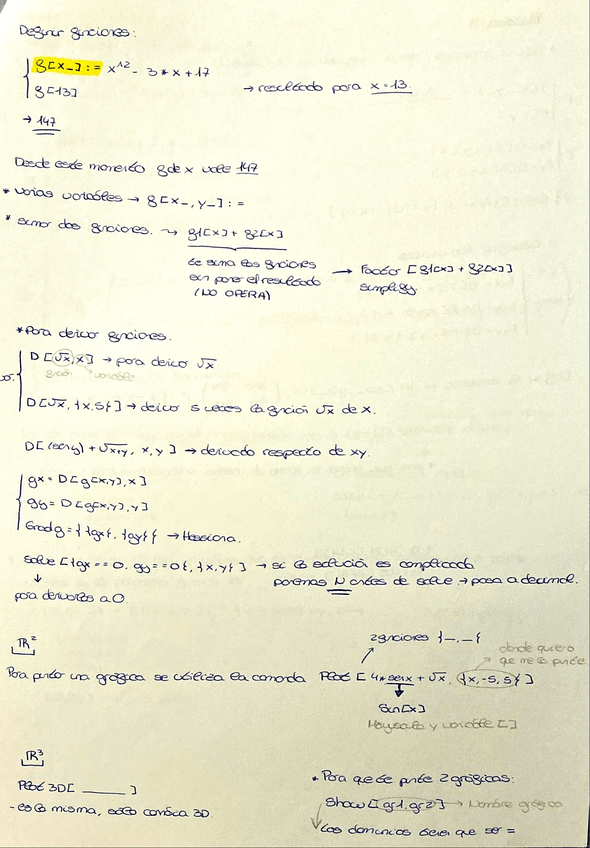 Definir funciones:
f[x_]:= x^2 - 3*x + 17
f[13]
→ resultado para x=13.
→ 147
Desde este momento f de x vale 147
* varias variables → f[x_,y_]:=
* sumar dos funciones. → f1[x] + f2[x]
te suma las funciones
sin poner el resultado
(NO OPERA)
→ Factor [f1[x] + f2[x]]
simplify
* Para derivar funciones.
D[√x, x] → para derivar √x
función variable
D[√x, {x,5}] → derivar 5 veces la función √x de x.
√x+y, x, y] → derivada respecto de xy.
fx = D[f[x,y],x]
fy = D[f[x,y],y]
Gradf = {{fx}, {fy}} → Hessiana.
Solve [{fx==0, fy==0}, {x,y}] → si la solución es complicada
ponemos N antes de solve → pasa a decimal.
↓
para derivarlos a 0.
ℝ²
2 funciones {_,_}
donde quiero
que me la pinte
Para pintar una gráfica se utiliza la comanda Plot [4*senx + √x, {x,-5,5}]
Sin[x]
Mayúscula y variable []
ℝ³
Plot 3D[ ______ ]
- es la misma, sólo cambia 3D.
* Para que te pinte 2 gráficas:
Show [gr1, gr2] → Nombre gráficas
Los dominios tienen que ser =